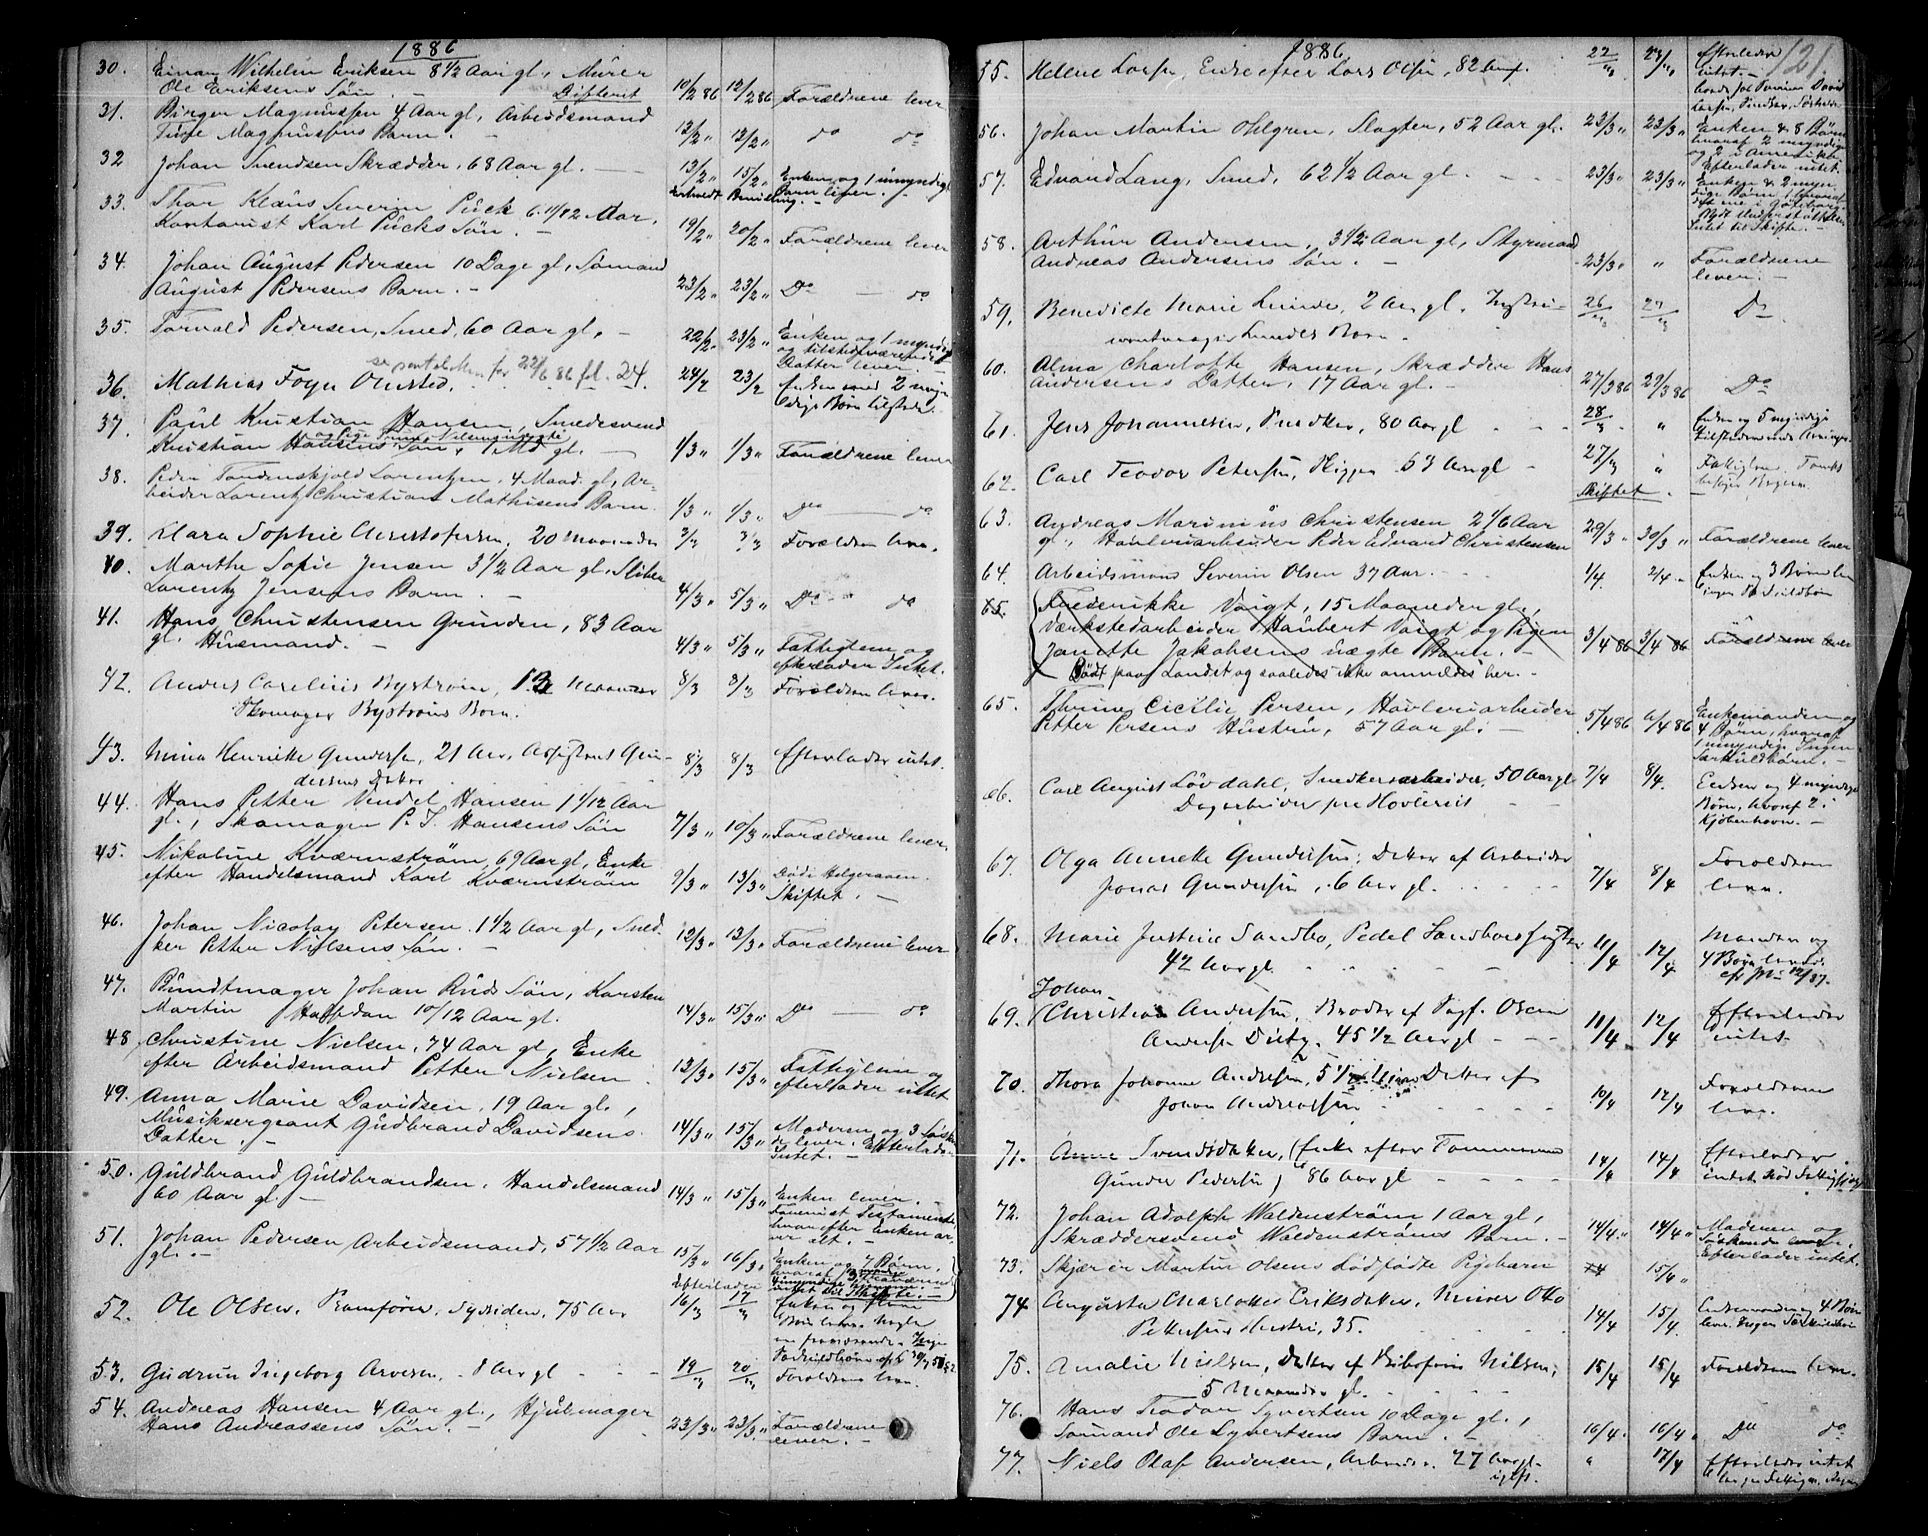 1886
30. Einar Wilhelm Eriksen 8 1/2 Aar gl., Murer
Ole Eriksens Søn. - Difterit 10/2 86 12/2 86 Forældrene lever
31. Birger Magnussen 4 Aar gl, Arbeidsmand
Magnussens Barn. - 12/2 " 13/2 " do do
32 Johan Svendsen Skrædder, 68 Aar gl. 13/2 " 15/2 " Enken og 1 umyndig
Barn lever. -
33. Thor Klaus Severin Puck 6 11/12 Aar,
Kontorist Karl Pucks Søn. - 19/2 " 20/2 " Forældrene lever
34. Johan August Pedersen 10 Dage gl, Sømand
August Pedersens Barn. - 23/2 " 23/2 " Do - do
35. Torvald Pedersen, Smed, 60 Aar gl. - 22/2 " 23/2 " Enken og 1 myndig
og tilstedeværende
Datter lever. -
for 22/6 86 fol. 24.
36. Mathias Foyn Olmsted. 24/2 23/2 Enken med 2 myn-
dige Børn tilstede.
37. Paul Kristian Hansen, Smedesvend
Kristian Hansens Søn, 1 Md gl. 1/3 " 1/3 " Forældrene lever
38. Peder Tordenskjold Lorentzen, 4 Maad. gl, Ar-
beider Lorentz Christian Mathisens Barn. 1/3 " 1/3 " Do - do
39. Klara Sophie Christofersen, 20 Maaneder 2/3 3/3 Forældren lever.
40. Marthe Sofie Jensen 3 1/2 Aar gl, Sliber
Lorentz Jensens Barn. - 4/3 " 5/3 " Do - do
41. Hans Christensen Grinden, 83 Aar
gl. Husmand. - 4/3 " 5/3 " Fattiglem og
efterlader Intet.
42. Anders Carelius Bystrøm, 13 Maaneder 8/3 8/3 Forældren lever.
Skomager Bystrøms Barn.
43. Mina Henriette Gundersen, 21 Aar, Assistent Gun-
dersens Datter 8/3 8/3 Efterlader intet.
44. Hans Petter Vendel Hansen 1 1/12 Aar
gl., Skomager P. J. Hansens Søn 7/3 " 10/3 " Forældrene lever.
45. Nikoline Kværnstrøm, 69 Aar gl, Enke
efter Handelsmand Karl Kværnstrøm 9/3 " 13/3 " Død i Helgeraaen.
Skiftet. -
46. Johan Nicolay Petersen. 1 1/2 Aar gl, Sned-
ker Petter Nielsens Søn. - 12/3 " 13/3 " Forældrene lever
47. Bundtmager Johan Ruds Søn, Karsten
Martin Halfdan 10/12 Aar gl. 14/3 " 15/3 " Do - do
48 Christine Nielsen, 74 Aar gl, Enke
efter Arbeidsmand Petter Nielsen. 13/3 " 15/3 " Fattiglem og
efterlader intet
49. Anna Marie Davidsen, 19 Aar gl.,
Musiksergeant Gudbrand Davidsens
Datter. - 14/3 " 15/3 " Moderen og 3 Søsken-
de lever. Efterlader
Intet. -
50. Guldbrand Guldbrandsen, Handelsmand
60 Aar gl. - 14/3 " 15/3 " Enken lever. -
Testamente,
hvorefter Enken ar-
ver alt. -
51. Johan Pedersen Arbeidsmand, 57 1/2 Aar
gl. - 15/3 " 16/3 " Enken og 7 Børn,
Efterlader
intet til Skifte. -
52. Ole Olsen, Sydsiden, 75 Aar 16/3 17/3 Enken og flere
Børn lever.
53. Gudrun Ingeborg Arvesen, - 8 Aar gl 19/3 20/3 Forældren lever.
54. Andreas Hansen 4 Aar gl., Hjulmager
Hans Andreassens Søn. - 23/3 " 23/3 " Forældrene
lever. -
1886 121.
55. Helene Larsen, Enke efter Lars Olsen, 82 Aar. 22/3 23/3 Efterlader
intet. -
56. Johan Martin Ohlgren, Slagter, 52 Aar gl. 23/3 " 23/3 " Enken & 8 Børn
hvoraf 2 myndige
og 2 i Amerika
Efterlader intet.
57. Edvard Lang, Smed, 62 1/2 Aar gl. 23/3 " 23/3 " Enken & 2 myn-
dige Børn
Intet til Skifte. -
58. Arthur Andersen, 3 1/2 Aar gl, Styrmand
Andreas Andersens Søn. - 23/3 " " Forældrene
lever. -
59. Benedicte Marie Lunde, 2 Aar gl. Instru-
mentmager Lundes Barn. 26/3 27/3 Do
60. Alma Charlotte Hansen, Skrædder Hans
Andersens Datter, 17 Aar gl. - 27/3 86 29/3 86 Do
61. Jens Johannesen, Snedker, 80 Aar gl 28/3 " Enken og 5 myndige
62. Carl Teodor Petersen, Skipper 53 Aar gl 27/3 " Fattiglem.
Skiftet.
63. Andreas Marinius Christensen 2 1/6 Aar
gl., Høvleriarbeider Peder Edvard Christensen 29/3 " 30/3 " Forældrene lever
64. Arbeidsmand Severin Olsen 37 Aar. 1/4. 2/4 " Enken og 3 Børn lever
ingen Særkuldbørn
65. Frederikke Voigt, 15 Maaneder gl.,
Værkstedarbeider Haubert Voigt og Pigen
Janette Jakobsens uægte Barn. - 3/4 86 3/4 86 Forældrene lever
Død paa Landet og saaledes ikke anmeldes her. -
65. Thrine Cicilie Persen, Høvleriarbeider
Petter Persens Hustru, 57 Aar gl. - 5/4 86 6/4 86 Enkemanden og
4 Børn, hvoraf
1 umyndig. Ingen
Særkuldbørn. -
66. Carl August Løvdahl, Snedkerarbeider, 50 Aar gl 7/4 8/4. Enken og 4 myndige
Dagarbeider paa Høvleriet Børn, hvoraf 2 i
Kjøbenhavn. -
67. Olga Annette Gundersen, Datter af Arbeider
Jonas Gundersen, 6 Aar gl. 7/4 8/4 Forældren
lever.
68. Marie Justine Sandbo, Pedel Sandboes Hustru
42 Aar gl. 11/4 12/4 Manden og
4 Børn lever.
69. Johan
Christian Andersen, Broder af
Andersen 45 1/2 Aar gl 11/4 12/4 Efterlader
intet.
70. Thora Johanne Andresen, 5 1/2 Datter af
Johan Andreassen 10/4 12/4 Forældren
lever.
71. Anne Svendsdatter, (Enke efter Tømmermand
Gunder Pedersen) 86 Aar gl 14/4 14/4 Efterlader
intet.
72. Johan Adolph Waldenstrøm 1 Aar gl,
Skræddersvend Waldenstrøms Barn. - 14/4 " 14/4 " Moderen og
Søskende lever.
Efterlader intet.
73. Martin Olsens dødfødte Pigebarn 14 15/4 "
74 Augusta Charlotte Eriksdatter, Murer Otto
Pettersens Hustru, 35. 14/4 15/4. Enkemanden og 4 Børn
lever. Ingen Særkuldbørn
75. Amalie Nielsen, Datter af Nilsen,
5 Maaneder gl. 15/4 15/4 Forældren lever.
76. Hans Teodor Syvertsen 10 Dage gl.,
Sømand Ole Syvertsens Barn. - 16/4. 16/4 " Do do
77. Niels Olaf Andersen, Arbeider. 27 Aar gl.
ugift. " 17/4 Efterlader intet